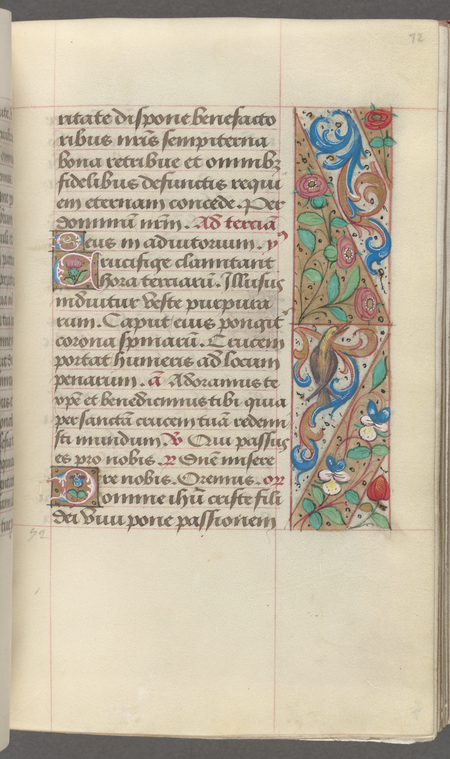 12
ritate dispone benefacto
ribus nr̃is sempiterna
bona retribue et omnibꝫ
fidelibus defunctis requi
em eternam concede. Per
dominum nr̃m. Ad terciã
Deus in adiutorium. ỹ
Crucifige clamitant
hora terciarum. Illusus
induitur veste purpura
rum. Caput eius pongit̃
corona spinarum. Crucem
portat humeris ad locum
penarum. ã Adoramus te
xp̃e et benedicimus tibi quia
per sanctã crucem tuã redemi
sti mundum. ꝟ Qui passus
es pro nobis. ꝶ Dñe misere
re nobis. Oremus. or̃
Domine ihũ criste fili
dei viui pone passionem